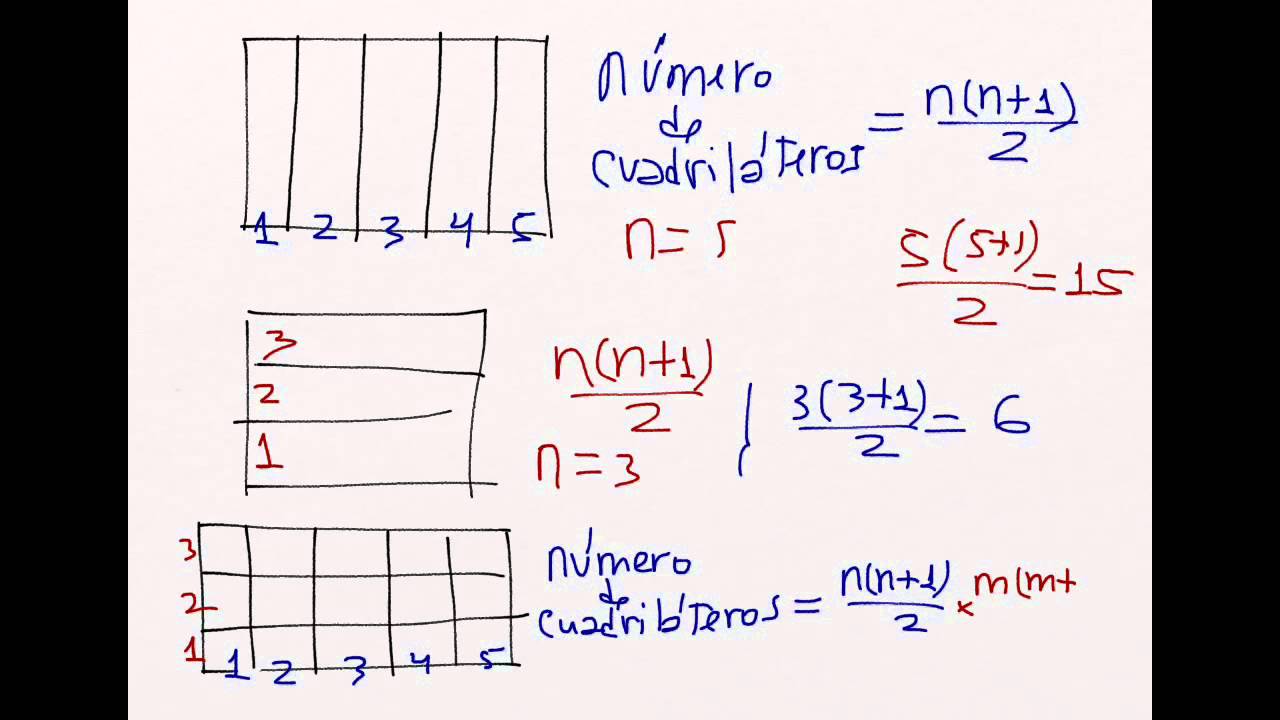 número
de
cuadriláteros = n(n+1)/2
1 2 3 4 5
n = 5
5(5+1)/2 = 15
3
2
1
n(n+1)/2
n = 3
3(3+1)/2 = 6
3
2
1
1 2 3 4 5
número
de
cuadriláteros = n(n+1)/2 × m(m+